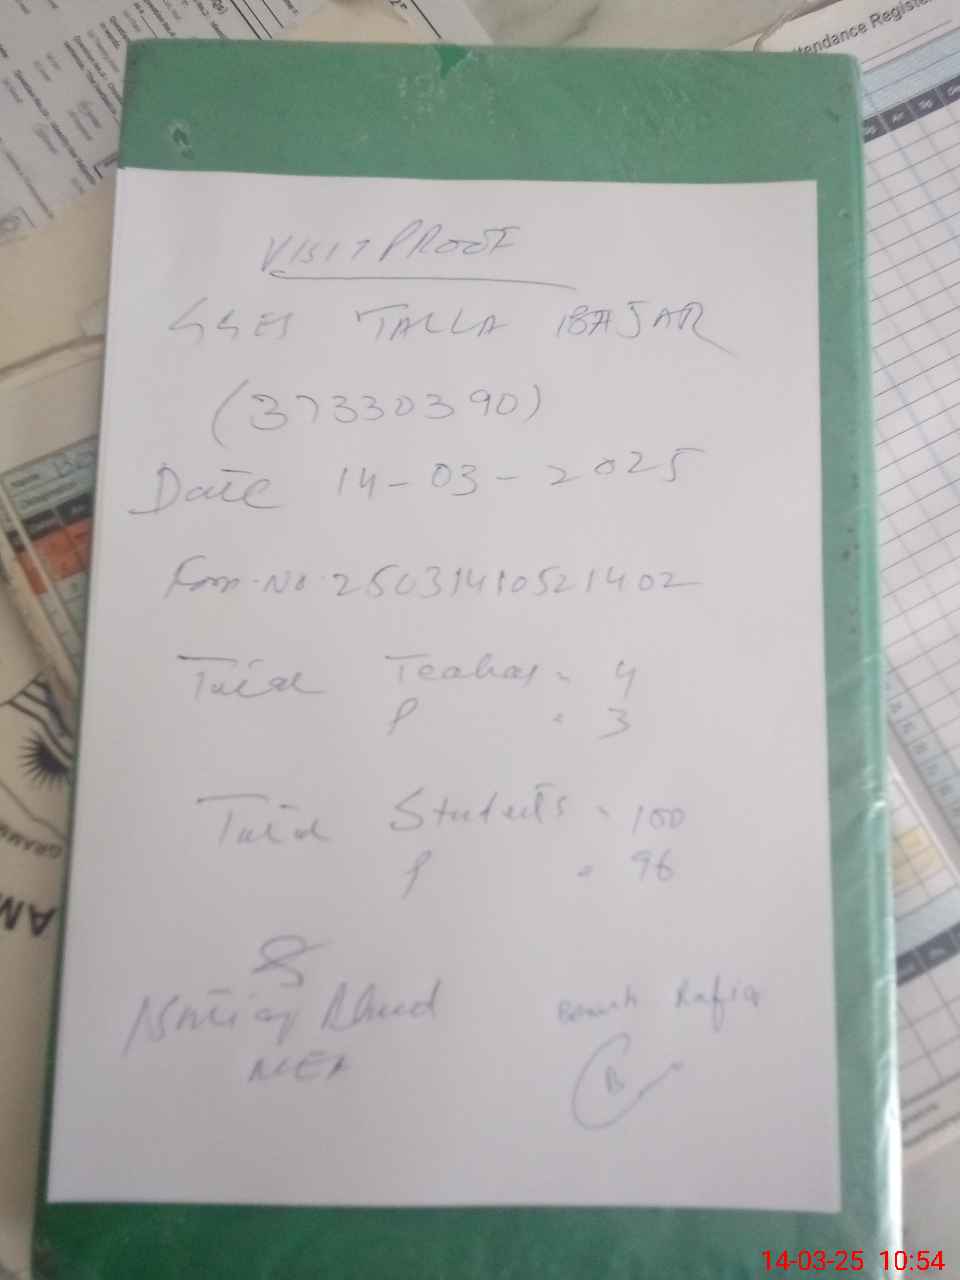 VISIT PROOF
GGES TALLA BAJAR
(37330390)
Date 14-03-2025
No. 25031410521402
Total Teachers = 4
P = 3
Total Students = 100
P = 96
Ahmad
Rafiq
MEA
B
Attendance Register
14-03-25 10:54